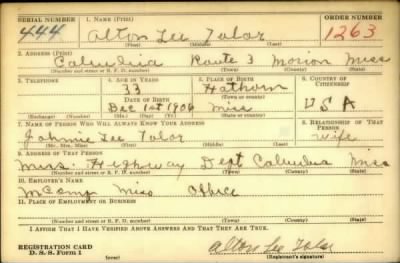 SERIAL NUMBER 1. NAME (Print) ORDER NUMBER
444 Alton Lee Tolar 1263
2. ADDRESS (Print)
Columbia Route 3 Marion Miss
(Number and street or R. F. D. number) (Town) (County) (State)
3. TELEPHONE 4. AGE IN YEARS 5. PLACE OF BIRTH 6. COUNTRY OF CITIZENSHIP
33 Hathorn
DATE OF BIRTH
Dec 1st 1906 Miss USA
(Exchange) (Number) (Mo.) (Day) (Yr.) (State or country)
7. NAME OF PERSON WHO WILL ALWAYS KNOW YOUR ADDRESS 8. RELATIONSHIP OF THAT PERSON
Johnie Lee Tolar wife
(Mr., Mrs., Miss) (First) (Middle) (Last)
9. ADDRESS OF THAT PERSON
Miss. Highway Dept Columbia Miss
(Number and street or R. F. D. number) (Town) (County) (State)
10. EMPLOYER'S NAME
McComb Miss Office
11. PLACE OF EMPLOYMENT OR BUSINESS
(Number and street or R. F. D. number) (Town) (County) (State)
I AFFIRM THAT I HAVE VERIFIED ABOVE ANSWERS AND THAT THEY ARE TRUE.
REGISTRATION CARD
D. S. S. Form 1 (over) Alton Lee Tolar
(Registrant's signature)